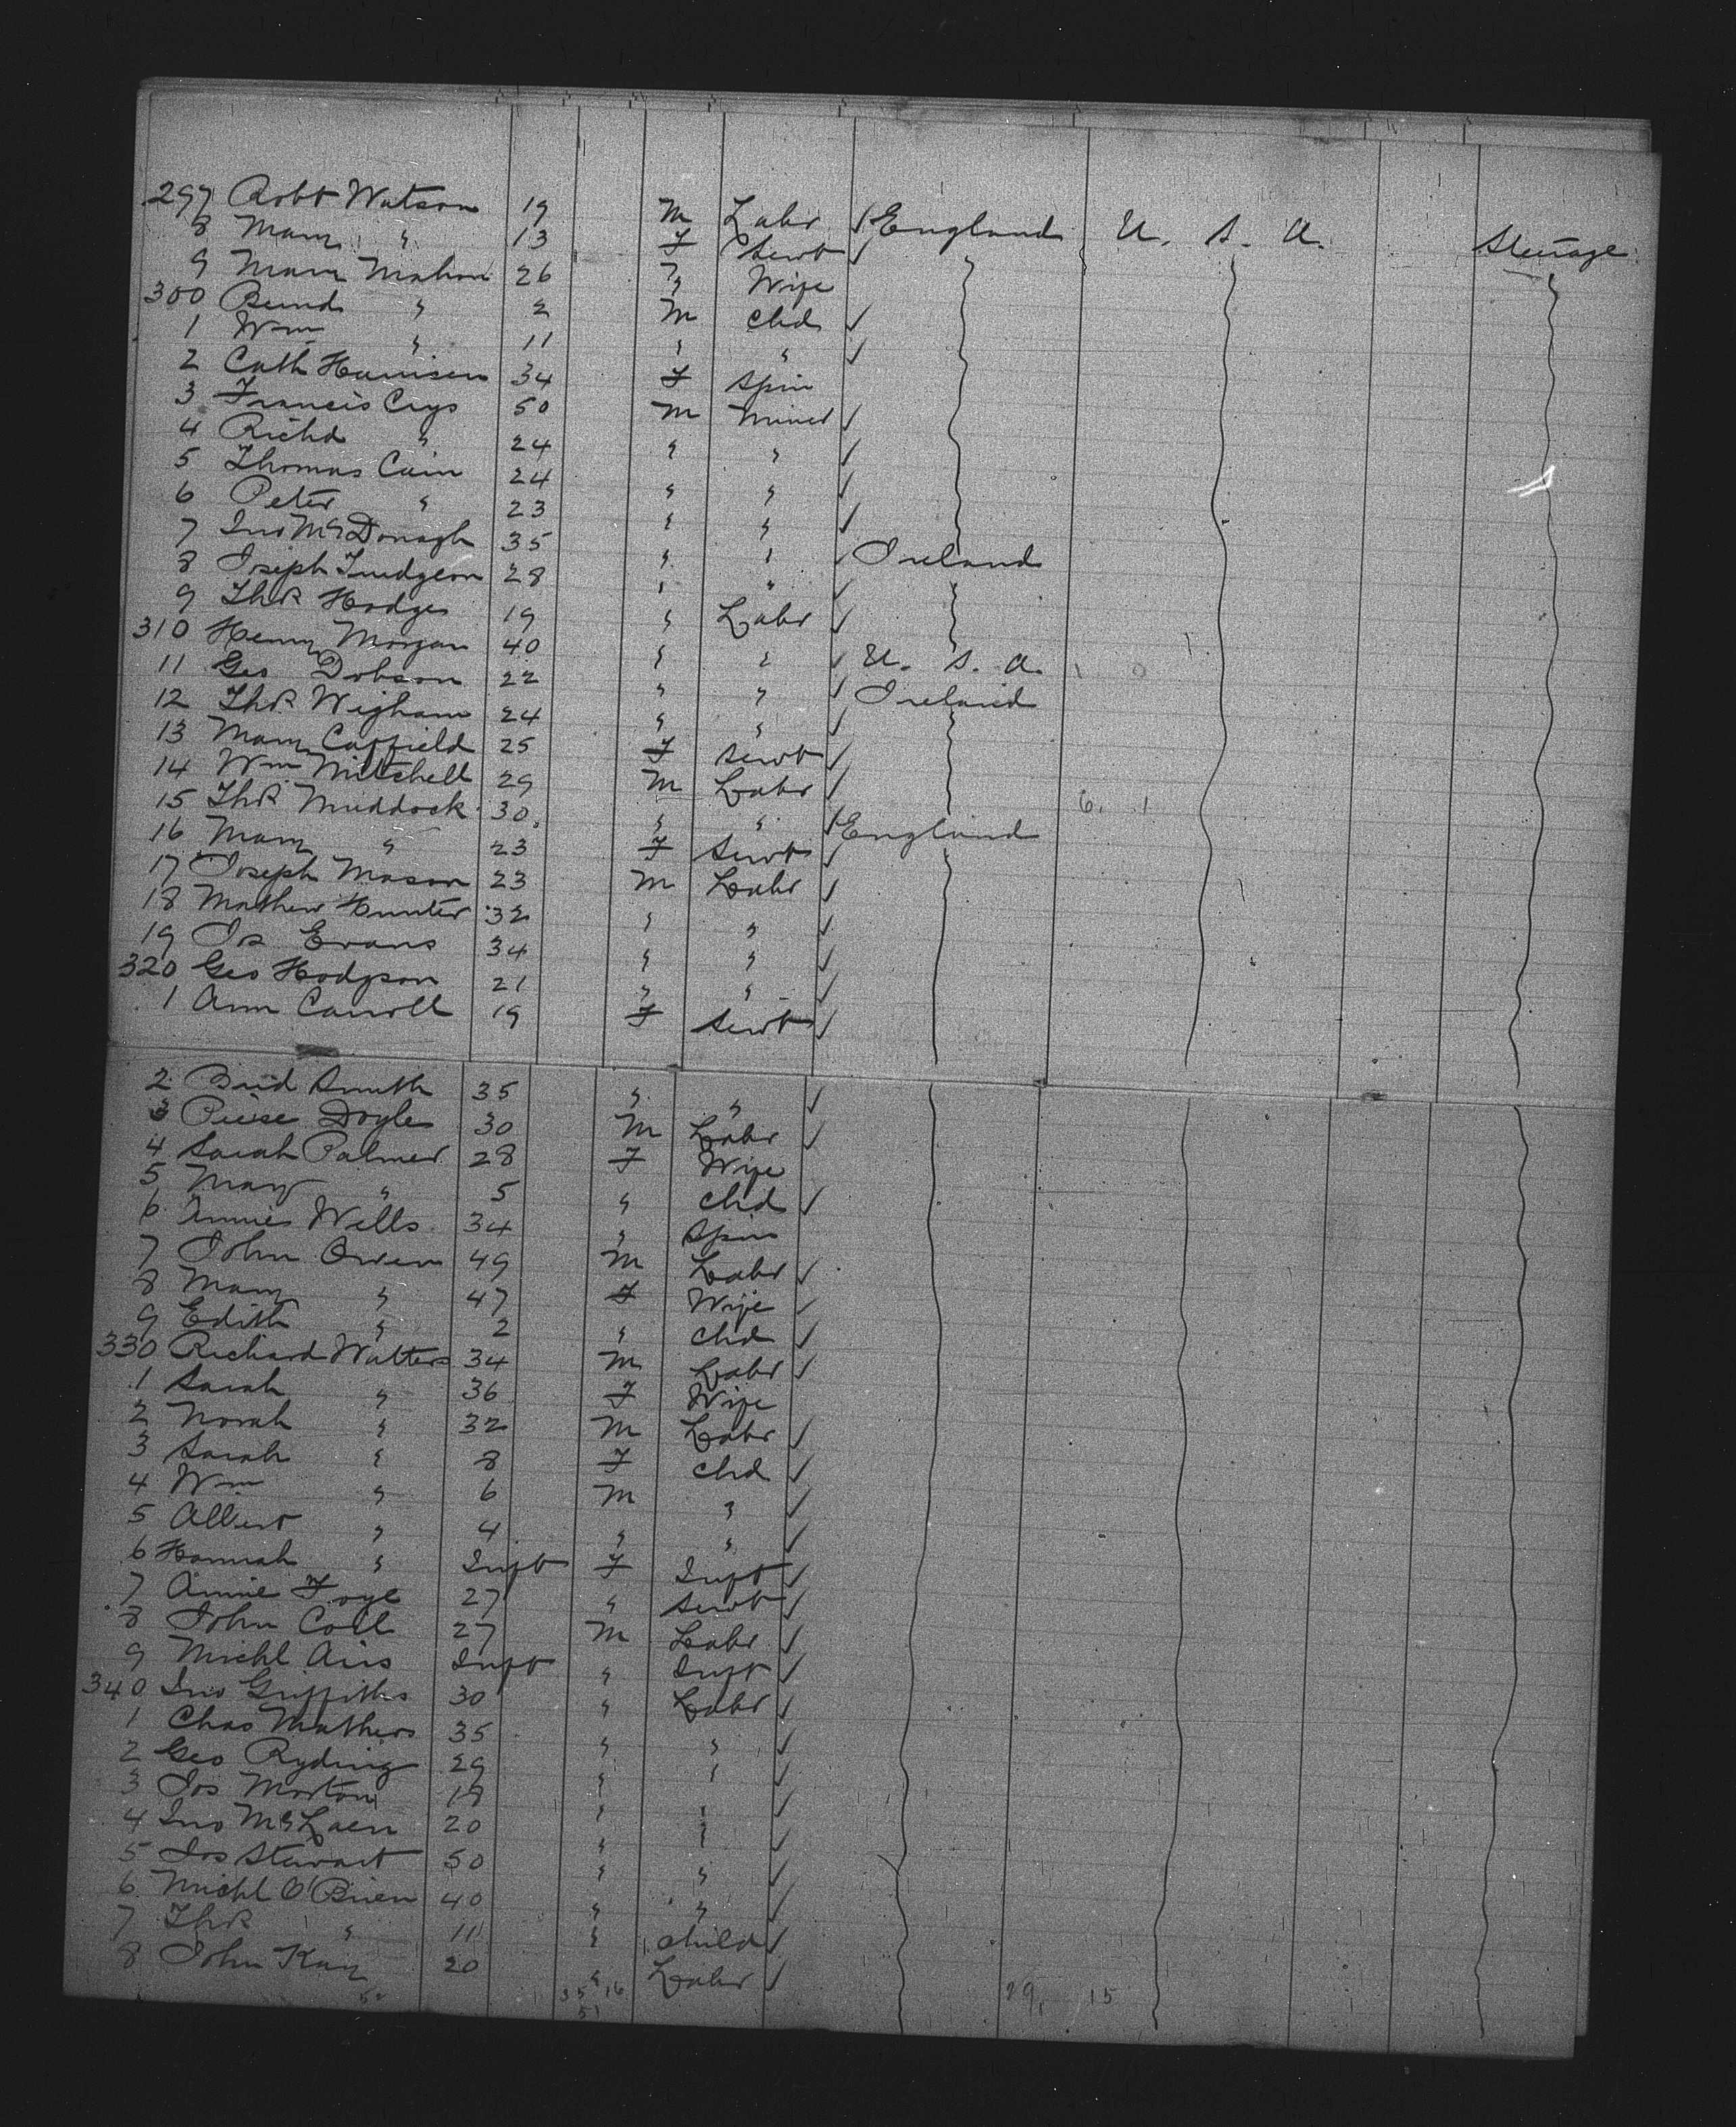 297 Robt Watson 19 M Labr ✓ England U. S. A. Steerage
8 Mary " 13 F Servt ✓
9 Mary Mahon 26 " Wife
300 Bernd " 2 M Chd ✓
1 Wm " 11 " " ✓
2 Cath Harrison 34 F Spin
3 Francis Crys 50 M Miner ✓
4 Richd " 24 " " ✓
5 Thomas Cain 24 " " ✓
6 Peter " 23 " " ✓
7 Jno McDonagh 35 " " ✓ Ireland
8 Joseph Trudgeon 28 " " ✓
9 Thos Hodges 19 " Labr ✓
310 Henry Morgan 40 " " ✓ U. S. A. 1 0
11 Geo Dobson 22 " " ✓ Ireland
12 Thos Wigham 24 " " ✓
13 Mary Caffield 25 F Servt ✓
14 Wm Mitchell 29 M Labr ✓
15 Thos Muddock 30 " " ✓ England 6. 1
16 Mary " 23 F Servt ✓
17 Joseph Mason 23 M Labr ✓
18 Mathew Hunter 32 " " ✓
19 Js Evans 34 " " ✓
320 Geo Hodgson 21 " " ✓
1 Ann Carroll 19 F Servt ✓
2 Brid Smith 35 " " ✓
3 Pierse Doyle 30 M Labr ✓
4 Sarah Palmer 28 F Wife
5 Mary " 5 " Chd ✓
6 Annie Wells 34 " Spin
7 John Owen 49 M Labr ✓
8 Mary " 47 F Wife ✓
9 Edith " 2 " Chd ✓
330 Richard Walters 34 M Labr ✓
1 Sarah " 36 F Wife
2 Norah " 32 M Labr ✓
3 Sarah " 8 F Chd ✓
4 Wm " 6 M " ✓
5 Albert " 4 " " ✓
6 Hannah " Inft F Inft ✓
7 Annie Foye 27 " Servt ✓
8 John Coll 27 M Labr ✓
9 Michl Airs Inft " Inft ✓
340 Jno Griffiths 30 " Labr ✓
1 Chas Mathers 35 " " ✓
2 Geo Ryding 29 " " ✓
3 Jos Morton 18 " " ✓
4 Jno McLaen 20 " " ✓
5 Jos Stewart 50 " " ✓
6 Michl O'Brien 40 " " ✓
7 Thos " 11 " child ✓
8 John Kay 20 " Labr ✓
35 16 29, 15
51